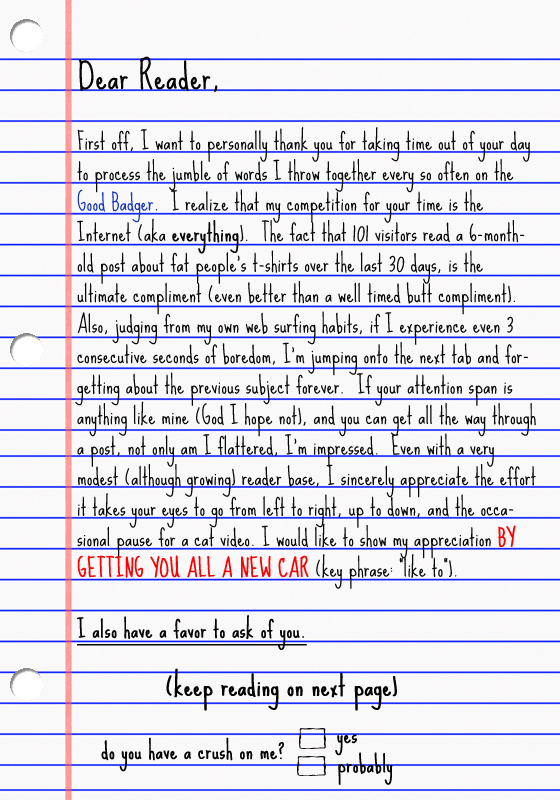 Dear Reader,
First off, I want to personally thank you for taking time out of your day
to process the jumble of words I throw together every so often on the
Good Badger.  I realize that my competition for your time is the
Internet (aka everything).  The fact that 101 visitors read a 6-month-
old post about fat people's t-shirts over the last 30 days, is the
ultimate compliment (even better than a well timed butt compliment).
Also, judging from my own web surfing habits, if I experience even 3
consecutive seconds of boredom, I'm jumping onto the next tab and for-
getting about the previous subject forever.  If your attention span is
anything like mine (God I hope not), and you can get all the way through
a post, not only am I flattered, I'm impressed.  Even with a very
modest (although growing) reader base, I sincerely appreciate the effort
it takes your eyes to go from left to right, up to down, and the occa-
sional pause for a cat video. I would like to show my appreciation BY
GETTING YOU ALL A NEW CAR (key phrase: "like to").
I also have a favor to ask of you.
(keep reading on next page)
do you have a crush on me?
yes
probably